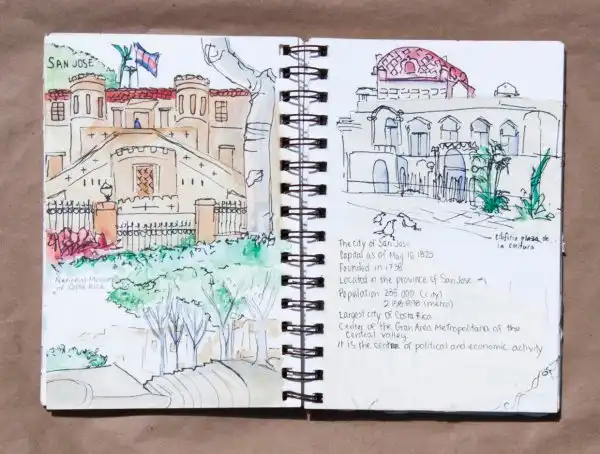 SAN JOSE
National Museum
of Costa Rica
edificio plaza de
la cultura
The city of San José
Capital as of May 16 1823
Founded in 1738
Located in the province of San Jose
Population 288 000 (city)
(metro)
Largest city of Costa Rica
Center of the Gran Area Metropolitana of the
Central valley
It is the center of political and economic activity